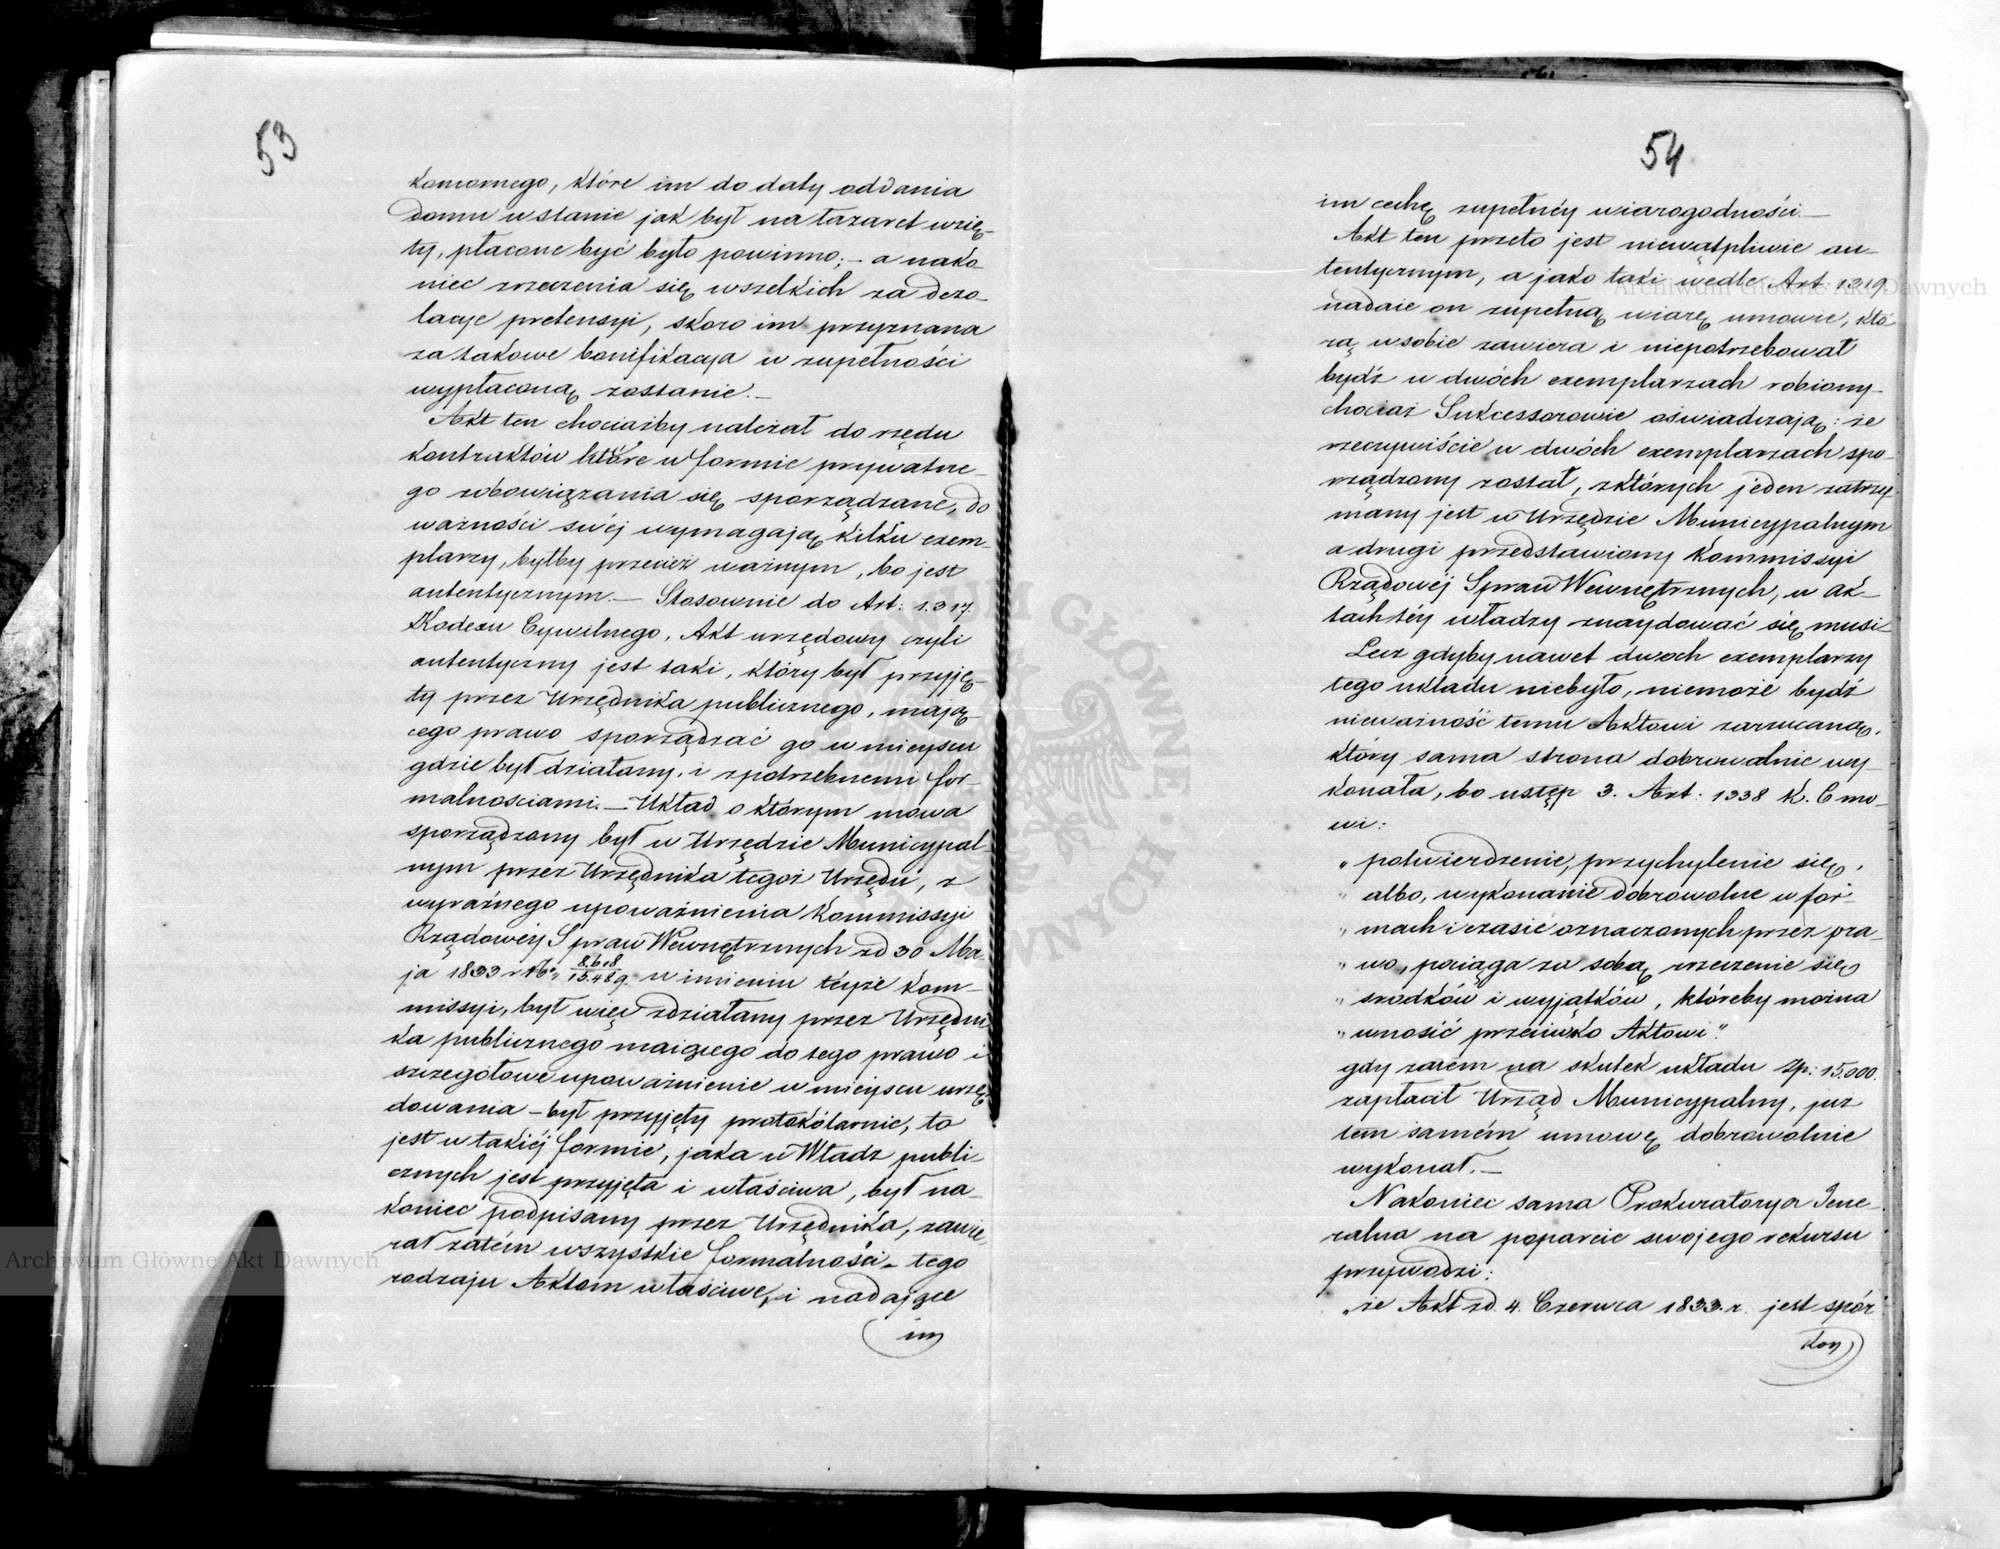 53
komornego, które im do daty oddania
domu w stanie jak był na lazaret wzię-
ty, płacone być było powinno; – a nako-
niec zrzeczenia się wszelkich za dezo-
lacye pretensyi, skoro im przyznana
za takowe bonifikacya w zupełności
wypłaconą zostanie. –
Akt ten chociażby należał do rzędu
kontraktów które w formie prywatne-
go zobowiązania się sporządzane, do
ważności swéj wymagają kilku exem-
plarzy, byłby przecież ważnym, bo jest
autentycznym. – Stosownie do Art: 1.317.
Kodexu Cywilnego, Akt urzędowy czyli
autentyczny jest taki, który był przyję-
ty przez Urzędnika publicznego, mają-
cego prawo sporządzać go w mieyscu
gdzie był działany, i z potrzebnemi for-
malnosciami. – Układ o którym mowa
sporządzony był w Urzędzie Municypal-
nym przez Urzędnika tegoż Urzędu, z
wyraźnego upoważnienia Kommissyi
Rządowéy Spraw Wewnętrznych zd 30 Ma-
ja 1833 r No 8.618/15.489. w imieniu teyże Kom-
missyi, był więc zdziałany przez Urzędni
ka publicznego maiącego do tego prawo i
szczegółowe upoważnienie w mieyscu urzę
dowania – był przyjęty protokólarnie, to
jest w takiéj formie, jaka u Władz publi-
cznych jest przyjęta i właściwa, był na-
koniec podpisany przez Urzędnika, zawie-
rał zatém wszystkie formalności – tego
rodzaju Aktom właściwe, i nadające
im
54
im cechę zupełnéy wiarogodności. –
Akt ten przeto jest niewątpliwie au-
tentycznym, a jako taki wedle Art 1319
nadaie on zupełną wiarę umowie, któ-
rą w sobie zawiera i niepotrzebował
bydź w dwóch exemplarzach robiony
chociaż Sukcessorowie oświadczają: że
rzeczywiście w dwóch exemplarzach spo-
rządzony został, z których jeden zatrzy-
many jest w Urzędzie Municypalnym
a drugi przedstawiony Kommissyi
Rządowéj Spraw Wewnętrznych, w ak-
tach téy władzy znaydować się musi –
Lecz gdyby nawet dwoch exemplarzy
tego układu niebyło, niemoże bydź
nieważność temu Aktowi zarzucaną,
który sama strona dobrowolnie wy-
konała, bo ustęp 3. Art: 1338 K. C mo-
wi:
„ potwierdzenie, przychylenie się,
„ albo, wykonanie dobrowolne w for-
„ mach i czasie oznaczonych przez pra-
„ wo, pociąga za sobą zrzeczenie się
„ srodków i wyjątków, któreby można
„ wnosić przeciwko Aktowi."
gdy zatem na skutek układu Zp: 15.000.
zapłacił Urząd Municypalny, już
tem samém umowę dobrowolnie
wykonał. –
Nakoniec sama Prokuratorya Jene-
ralna na poparcie swojego rekursu
przywodzi:
„że Akt zd. 4. Czerwca 1833. r. jest spór
kon
Archiwum Główne Akt Dawnych
Archiwum Główne Akt Dawnych